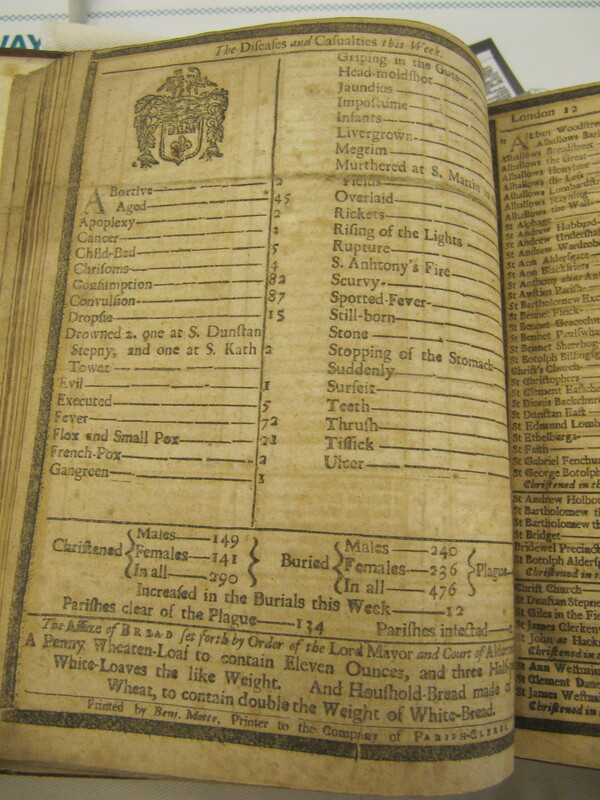 WAY
The Diseases and Casualties this Week.
ABortive 2
Aged 45
Apoplexy 2
Cancer 2
Child-Bed 5
Chrisoms 4
Consumption 82
Convulsion 87
Dropsie 15
Drowned 2. one at S. Dunstan
Stepny, and one at S. Kath 2
Tower
Evil 1
Executed 5
Fever 72
Flox and Small Pox 21
French-Pox 2
Gangreen 1
Griping in the Guts
Head-moldshot
Jaundies
Impostume
Infants
Livergrown
Megrim
Murthered at S. Martin in
Fields
Overlaid
Rickets
Rising of the Lights
Rupture
S. Anhtony's Fire
Scurvy
Spotted-Fever
Still-born
Stone
Stopping of the Stomach
Suddenly
Surfeit
Teeth
Thrush
Tissick
Ulcer
Christned { Males 149 Females 141 In all 290 }
Buried { Males 240 Females 236 In all 476 } Plague
Increased in the Burials this Week 12
Parishes clear of the Plague 134 Parishes infected
The Assize of BREAD set forth by Order of the Lord Mayor and Court of
A Penny Wheaten-Loaf to contain Eleven Ounces, and three Half-
White-Loaves the like Weight. And Houshold-Bread made of
Wheat, to contain double the Weight of White-Bread.
Printed by Benj. Motte, Printer to the Company of PARISH-CLERKS
London 12
St ALban Woodstree
Alhallows Bark
Alhallows Breadstreet
Alhallows the Great
Alhallows Honylane
Alhallows the Less
Alhallows Lombardstre
Alhallows Stayning
Alhallows the Wall
St Alphage
St Andrew Hubbard
St Andrew Undershaf
St Andrew Wardrobe
St Ann Aldersgate
St Ann Blackfriers
St Austins Parish
St Bartholomew Exc
St Bennet Finck
St Bennet Gracechu
St Bennet Paulswha
St Bennet Sherehog
St Botolph Billingsg
Christ's Church
St Christophers
St Clement Eastche
St Dionis Backchur
St Dunstan East
St Edmund Lomb
St Ethelburga
St Faith
St Gabriel Fenchur
St George Botolph
Christned in th
St Andrew Holbor
St Bartholomew th
St Bartholomew th
St Bridget
Bridewel Precinct
St Botolph Aldersg
Christned in t
Christ Church
St Dunstan Stepne
St Giles in the Fie
St James Clerken
St John at Hackn
Christned in
St Ann Westmin
St Clement Dane
St James Westm
Christned in